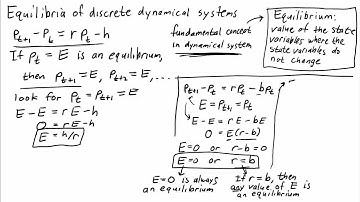 Equilibria of discrete dynamical systems
P_{t+1} - P_t = r P_t - h
If P_t = E is an equilibrium,
then P_{t+1} = E, P_{t+2} = E, .....
look for P_t = P_{t+1} = E
E - E = r E - h
0 = r E - h
E = h/r
fundamental concept
in dynamical system
Equilibrium:
value of the state
variables where the
state variables do
not change
P_{t+1} - P_t = r P_t - b P_t
E = P_{t+1} = P_t
E - E = r E - b E
0 = E (r - b)
E = 0 or r - b = 0
E = 0 or r = b
E = 0 is always
an equilibrium
If r = b, then
any value of E is
an equilibrium